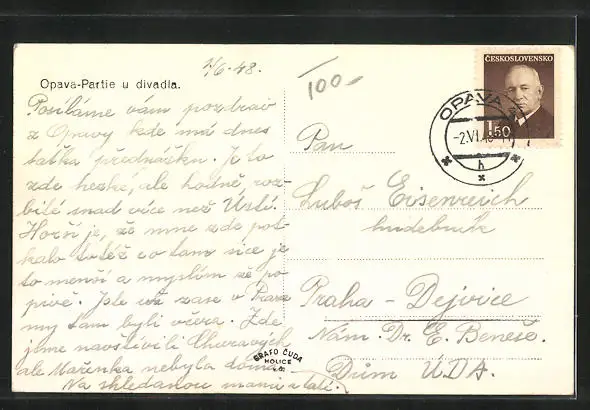 2/6.48.
100-
Opava-Partie u divadla.
Posíláme vám pozdrav
z Opavy kde má dnes
taťka přednášku. Je to
zde hezké, ale hodně roz-
bité snad více než Ústí.
Horší je, že mne zde pot-
kalo totéž co tam sice je
to menší a myslím že po
pivě. Jste už zase v Praze
my tam byli včera. Zde
jsme navštívili
ale Mařenka nebyla doma.
Na shledanou mami a tati.
ČESKOSLOVENSKO
1.50
OPAVA
-2.VI.48
h
Pan
Luboš Eisenreich
hudebník
Praha - Dejvice
Nám. Dr. E. Beneše.
Dům ÚDA.
GRAFO ČUDA
HOLICE